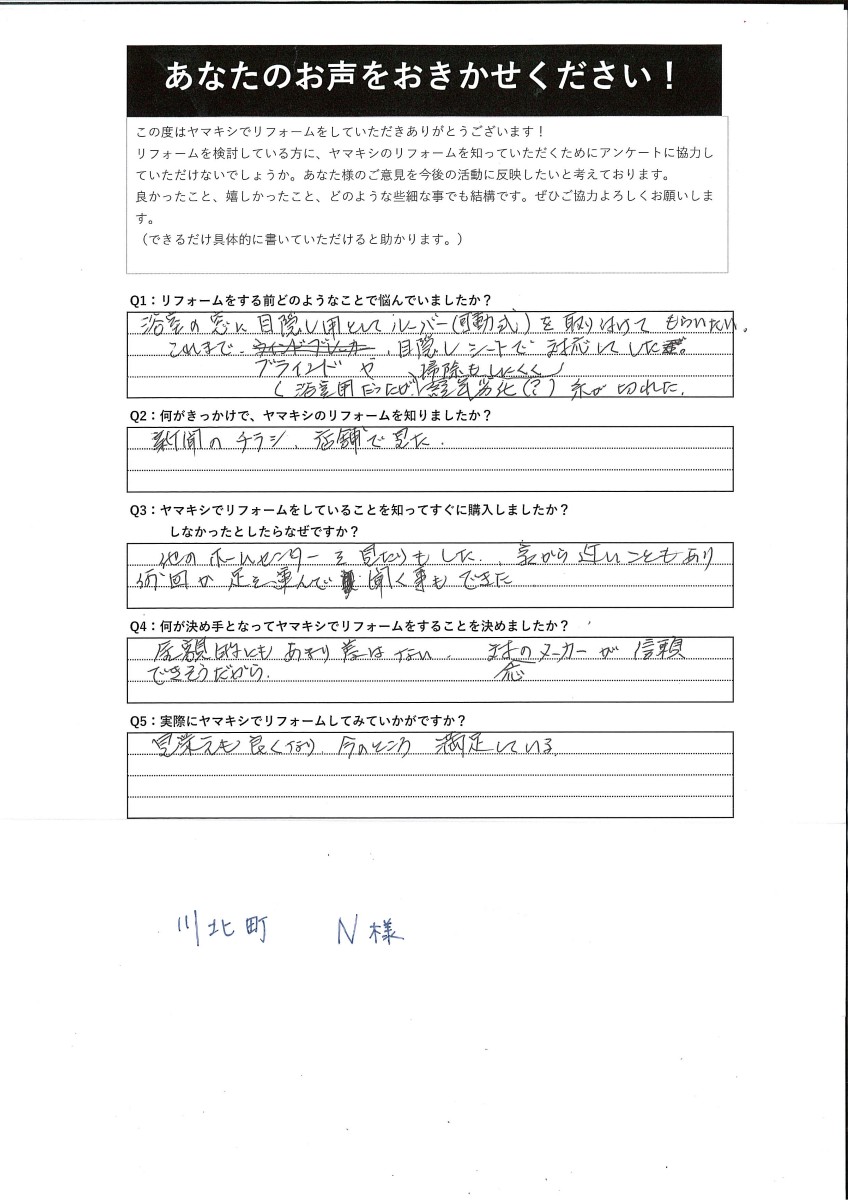 あなたのお声をおきかせください！
この度はヤマキシでリフォームをしていただきありがとうございます！
リフォームを検討している方に、ヤマキシのリフォームを知っていただくためにアンケートに協力し
ていただけないでしょうか。あなた様のご意見を今後の活動に反映したいと考えております。
良かったこと、嬉しかったこと、どのような些細な事でも結構です。ぜひご協力よろしくお願いしま
す。
（できるだけ具体的に書いていただけると助かります。）
Q1：リフォームをする前どのようなことで悩んでいましたか？
浴室の窓に目隠し用としてルーバー(可動式)を取り付けてもらいたい。
これまで、ウインドブレーカー、目隠しシートで対応してした。
ブラインドや 掃除もしにくく
(浴室用だったが、 劣化(？) 糸が切れた.
Q2：何がきっかけで、ヤマキシのリフォームを知りましたか？
新聞のチラシ、店舗で見た.
Q3：ヤマキシでリフォームをしていることを知ってすぐに購入しましたか？
しなかったとしたらなぜですか？
他のホームセンターを見たりもした.、家から近いこともあり
何回か足を運んで聞く事もできた
Q4：何が決め手となってヤマキシでリフォームをすることを決めましたか？
金額的にもあまり差はない. 対応のメーカーが信頼
できそうだから.
Q5：実際にヤマキシでリフォームしてみていかがですか？
見栄えも良くなり、今のところ満足している.
川北町 N様